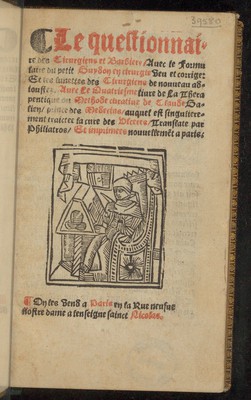 39580
Le questionnai-
re des Cirurgiens et Barbiers/Auec le Formu
laire du petit Guydon en cirurgie Veu et corrige:
Et les lunettes des Cirurgiens de nouueau ad-
ioustes. Auec Le quatriesme liure de La Thera
peutique ou Methode curatiue de Claude Ga-
lien/prince des Medecins/auquel est singuliere-
ment traictee la cure des Ulceres/Translate par
Philiatros/Et imprimees nouuellemēt a paris.
¶ On les vend a Paris en la Rue neufue
nostre dame a lenseigne sainct Nicolas.